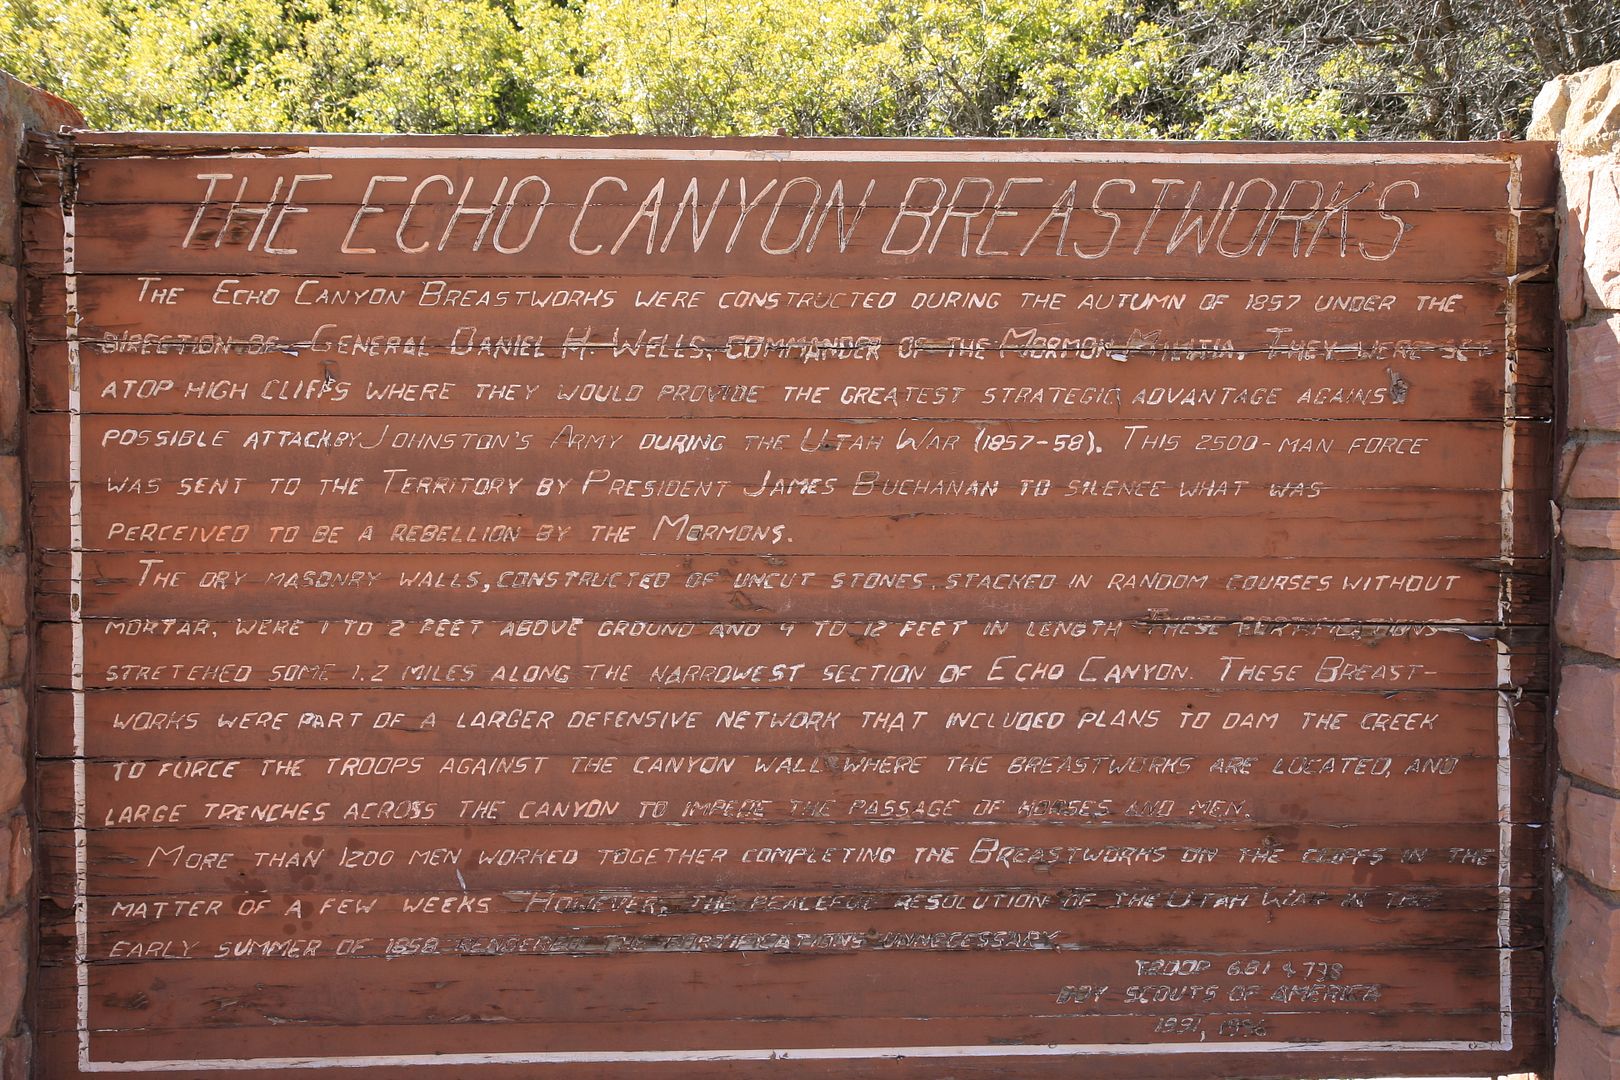 THE ECHO CANYON BREASTWORKS
THE ECHO CANYON BREASTWORKS WERE CONSTRUCTED DURING THE AUTUMN OF 1857 UNDER THE
DIRECTION OF GENERAL DANIEL H. WELLS, COMMANDER OF THE MORMON MILITIA. THEY WERE SET
ATOP HIGH CLIFFS WHERE THEY WOULD PROVIDE THE GREATEST STRATEGIC ADVANTAGE AGAINST
POSSIBLE ATTACK BY JOHNSTON'S ARMY DURING THE UTAH WAR (1857-58). THIS 2500-MAN FORCE
WAS SENT TO THE TERRITORY BY PRESIDENT JAMES BUCHANAN TO SILENCE WHAT WAS
PERCEIVED TO BE A REBELLION BY THE MORMONS.
THE DRY MASONRY WALLS, CONSTRUCTED OF UNCUT STONES, STACKED IN RANDOM COURSES WITHOUT
MORTAR, WERE 1 TO 2 FEET ABOVE GROUND AND 4 TO 12 FEET IN LENGTH THESE FORTIFICATIONS
STRETCHED SOME 1.2 MILES ALONG THE NARROWEST SECTION OF ECHO CANYON. THESE BREAST-
WORKS WERE PART OF A LARGER DEFENSIVE NETWORK THAT INCLUDED PLANS TO DAM THE CREEK
TO FORCE THE TROOPS AGAINST THE CANYON WALL WHERE THE BREASTWORKS ARE LOCATED, AND
LARGE TRENCHES ACROSS THE CANYON TO IMPEDE THE PASSAGE OF HORSES AND MEN.
MORE THAN 1200 MEN WORKED TOGETHER COMPLETING THE BREASTWORKS ON THE CLIFFS IN THE
MATTER OF A FEW WEEKS HOWEVER, THE PEACEFUL RESOLUTION OF THE UTAH WAR IN THE
EARLY SUMMER OF 1858 RENDERED THE FORTIFICATIONS UNNECESSARY
TROOP 681 & 738
BOY SCOUTS OF AMERICA
1991, 1996